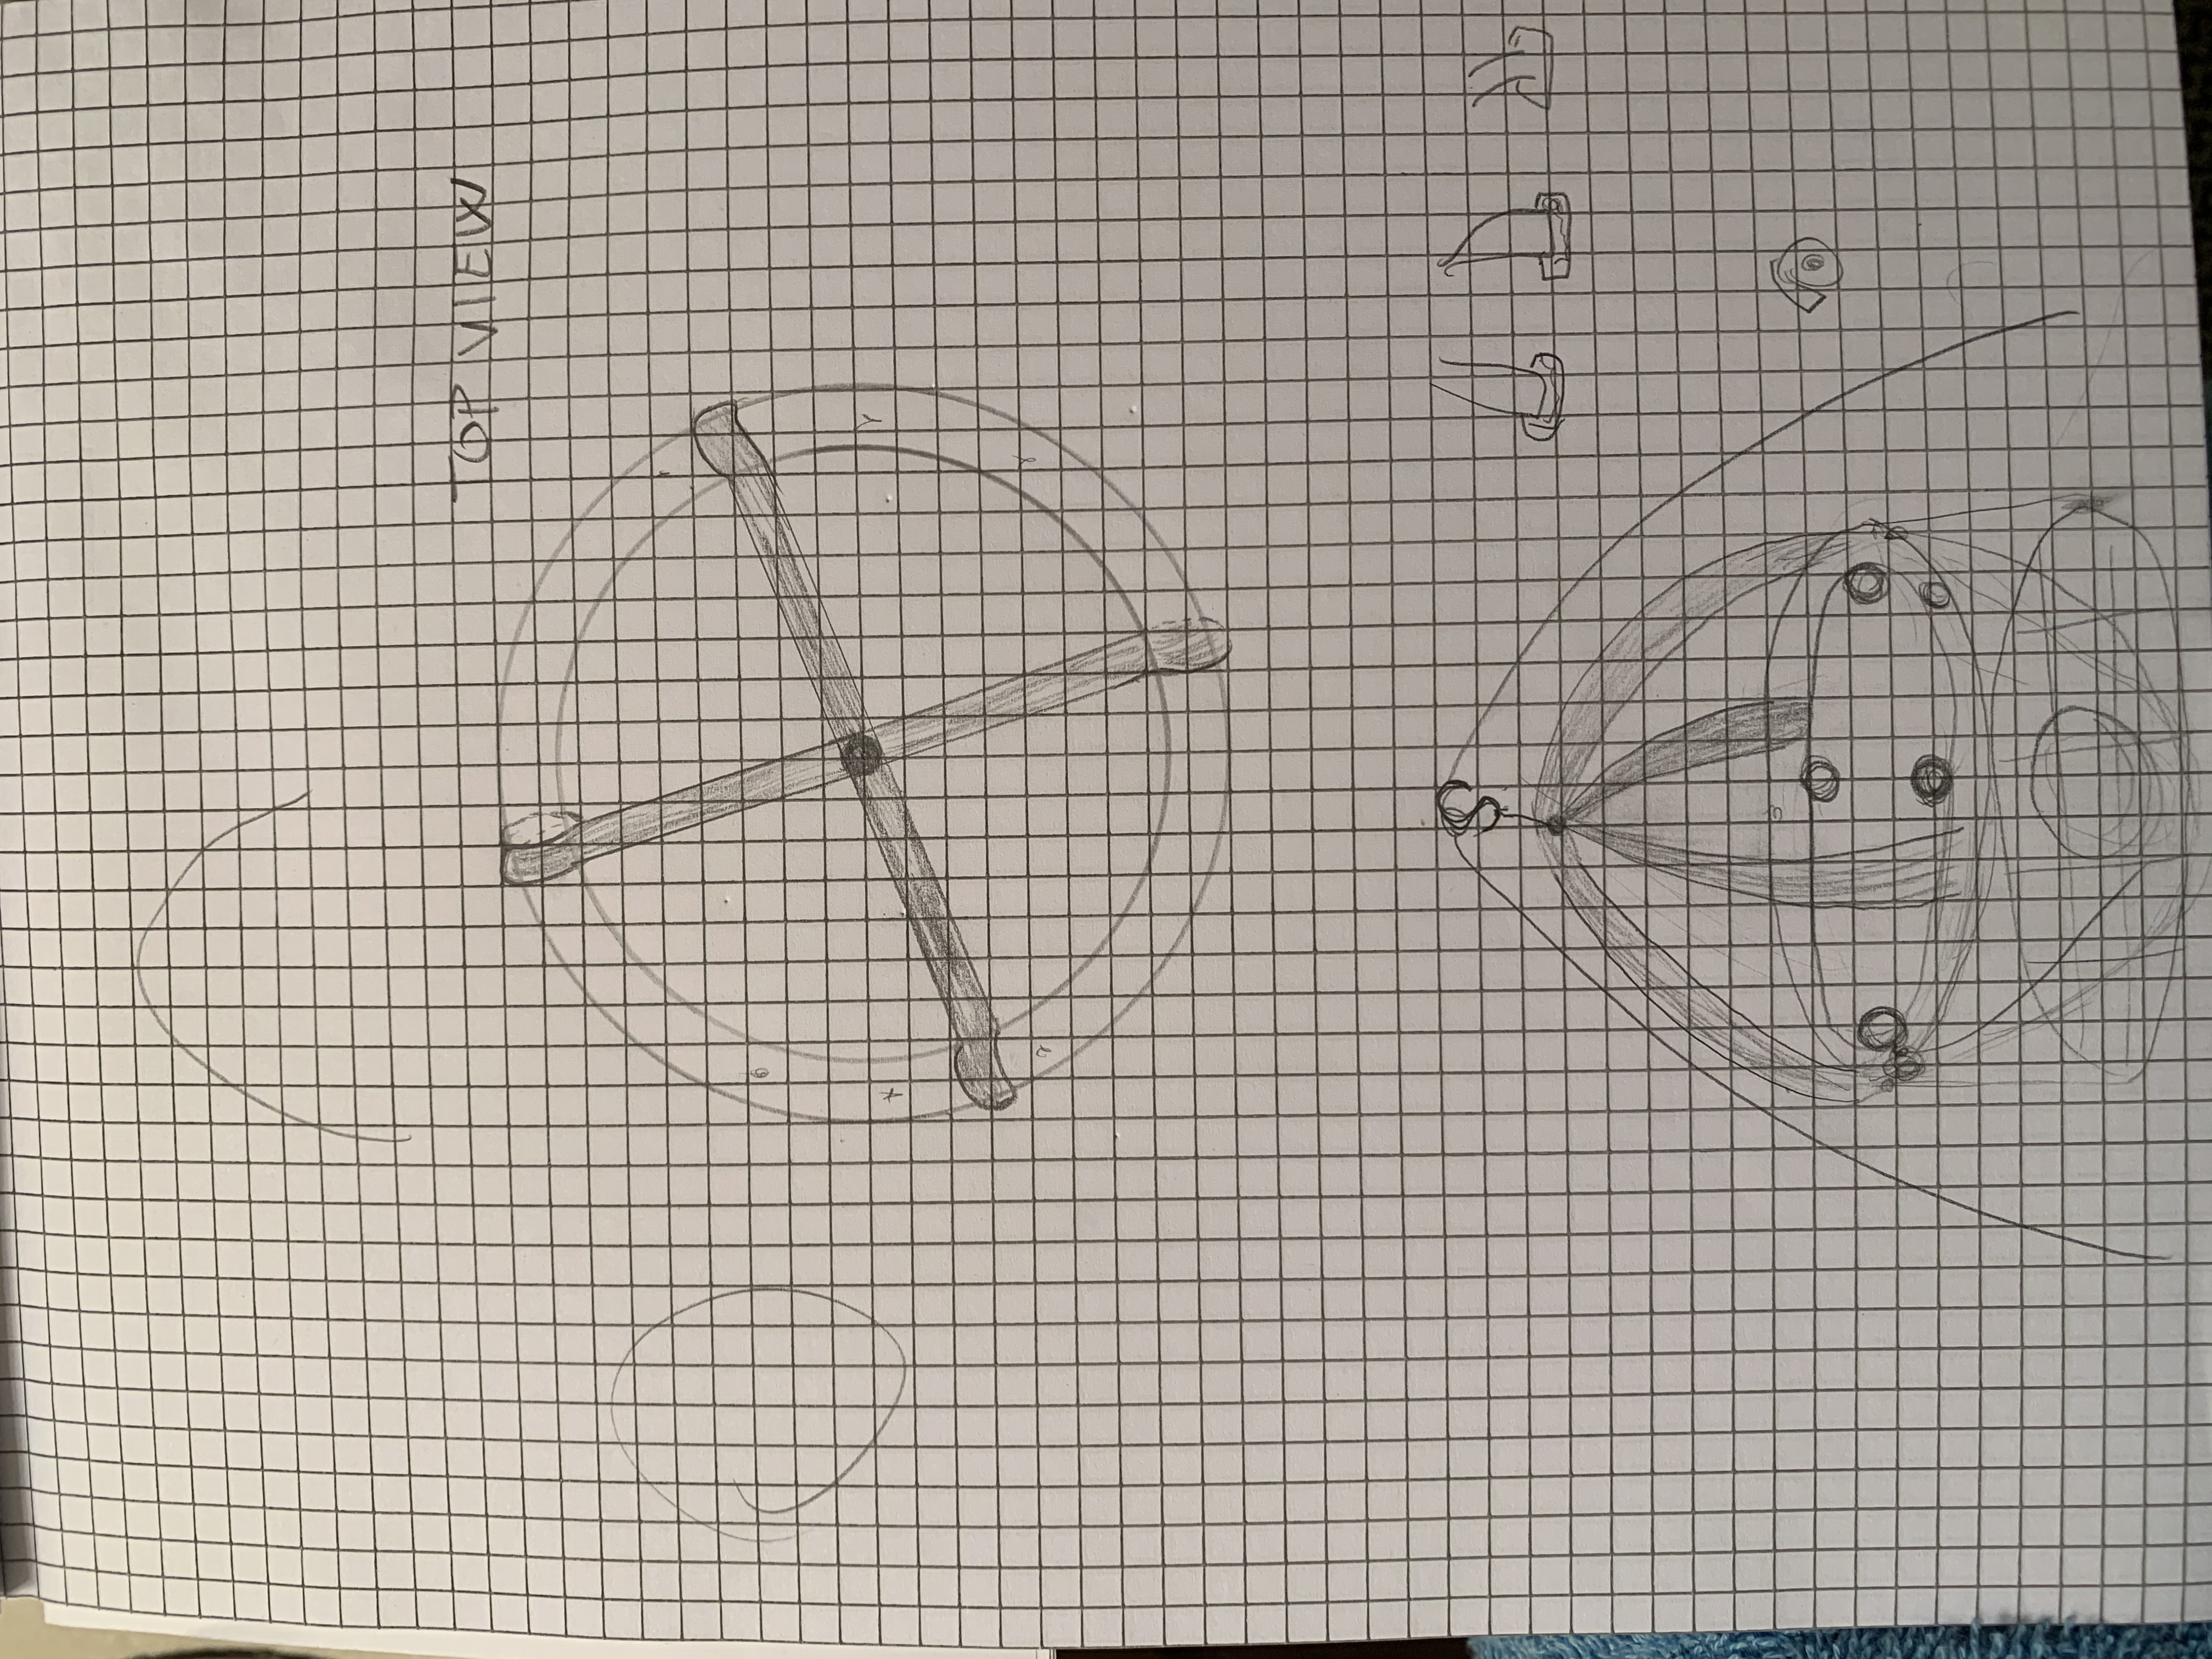 TOP VIEW